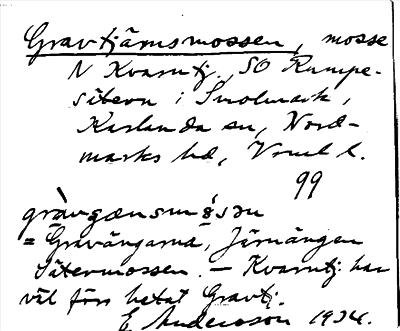 Gravtjärnsmossen, mosse
N Kvarntj. SO Rumpe-
sätern i Snolmark,
Karlanda sn, Nord-
marks hd, Vrml l.
99
= Gravängarna, Järnängen
Sätermossen. – Kvarntj. har
väl förr hetat Gravtj.
E Andersson 1924.